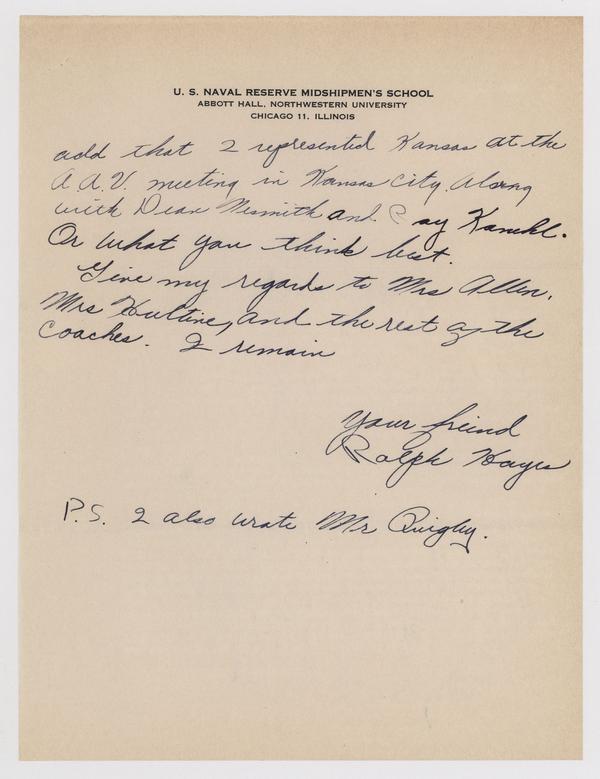 U. S. NAVAL RESERVE MIDSHIPMEN'S SCHOOL
ABBOTT HALL, NORTHWESTERN UNIVERSITY
CHICAGO 11, ILLINOIS
add that I represented Kansas at the
A.A.U. meeting in Kansas City. Along
with Dean Nesmith and Ray Kanehl.
Or what you think best.
Give my regards to Mrs Allen,
Mrs Hultine, and the rest of the
coaches. I remain
Your freind
Ralph Hayes
P.S. I also wrote Mr Quigley.